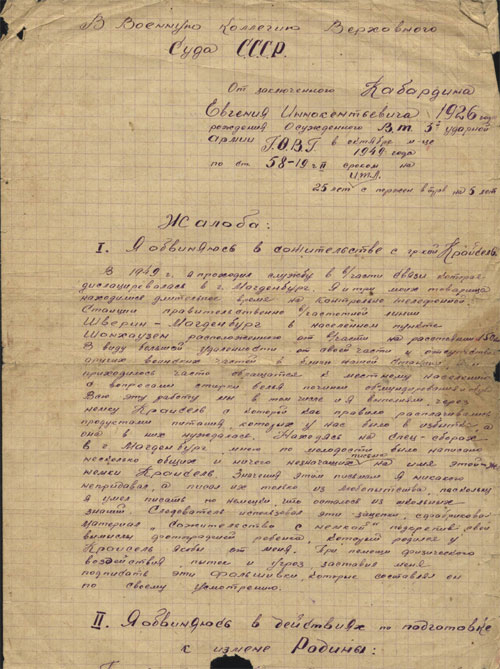 В Военную Коллегию Верховного
Суда СССР.
От заключенного Кабардина
Евгения Иннокентьевича 1926 год
рождения Осужденного В.Т. 5й ударной
армии Г.О.В.Г в октябре м-це
1949 года
по ст 58-19 сроком на
И.Т.Л.
25 лет с на 5 лет
Жалоба:
I. Я обвиняюсь в сожительстве с гр-кой Крайсель
В 1949 г. я проходил службу в Части связи которая
дислоцировалась в г. Магденбург. Я и три моих товарища
находились длительное время на контрольно телефонной
Станции правительственно Участочной линии
Шверин - Магденбург в населенном пункте
Шонхаузен расположенного от Части на расстоянии
В виду большой удаленности от своей части и отсутствия
других воинских частей в близи нашей станции
приходилось часто обращаться к местному населению
с вопросами стирки белья починки обмундирования
Всю эту работу мы в том числе и я выполняли через
немку Крайсель с которой как правило расплачивались
продуктами питания, которых у нас было в избытке, а
она в них нуждалась. Находясь на спец-сборах
в г. Магденбург мною по молодости было написано
несколько общих и ничего незначащих писем на имя этой
немки Крайсель. Значения этим письмам Я никакого
непридавал, а писал их только из любопытства, поскольку
я умел писать по немецки, что осталось из школьных
знаний. Следователь использовал эти зацепки, сфабриковал
материал "Сожительства с немкой"
вымыслы ребенка, который родился у
Крайсель якобы от меня. При помощи физического
воздействия пыток и угроз, заставил меня
подписать эти фальшивки, которые составлял он
по своему усмотрению.
II. Я обвиняюсь в действиях по подготовке
к измене Родины: